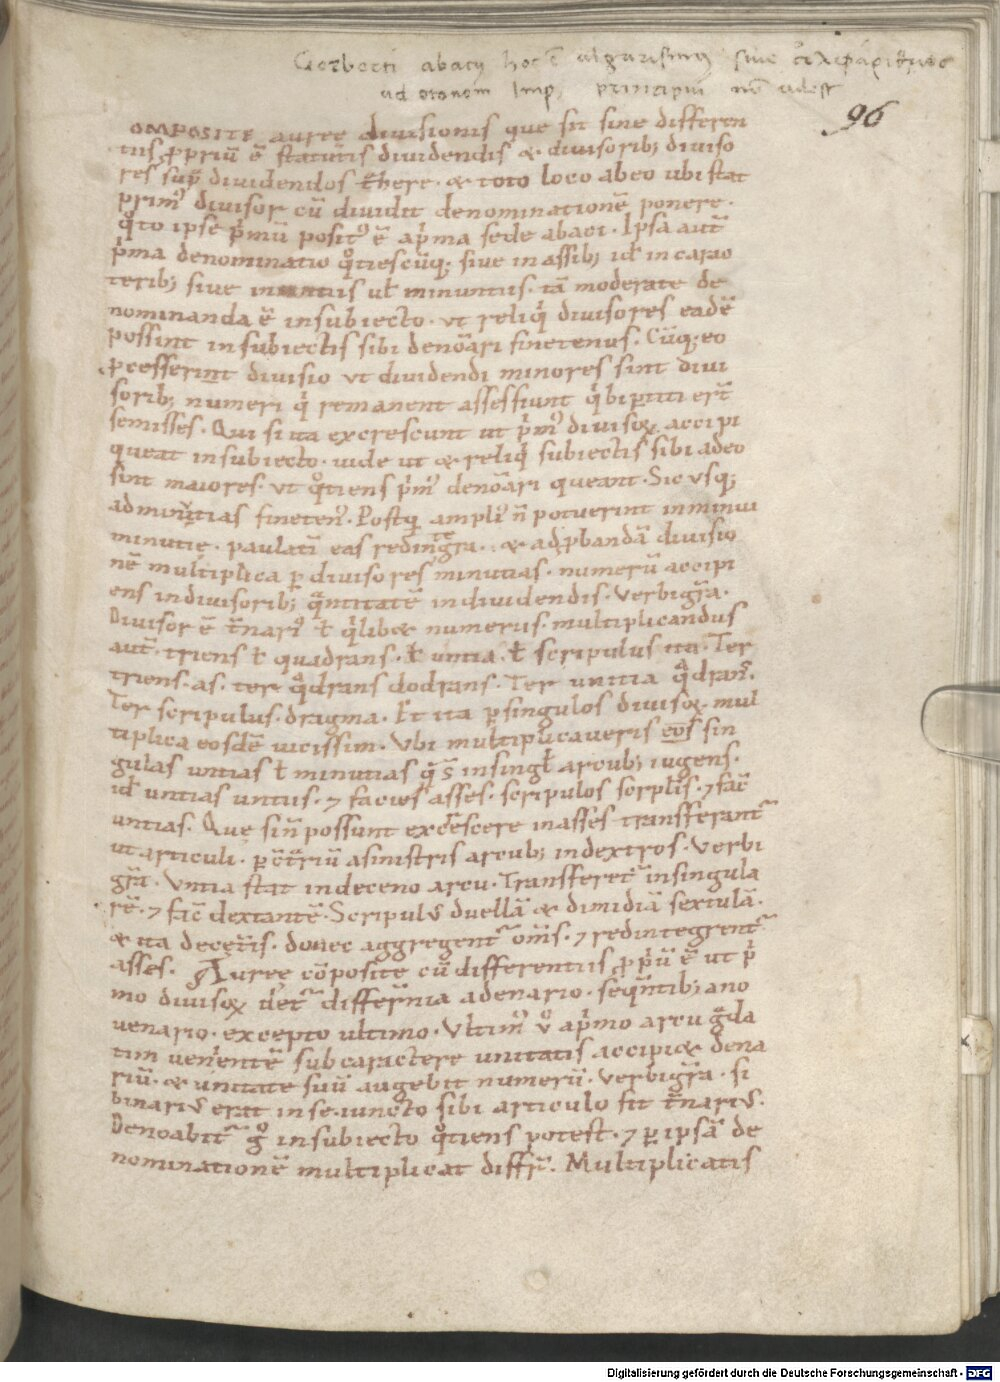 Gerberti abacus hoc ē algorismus sive
ad otonem Imp. principium nō adest
96
OMPOSITE aureę divisionis que sit sine differen
tiis ꝓpriū ē statutis dividendis & divisorib; diviso
res sup̄ dividendos t̄here. & toto loco ab eo ubi stat
prim᷒ divisor cū dividit denominationē ponere.
q̊to ipse p̄mū posit᷒ ē a p̄ma sede abaci. Ipsa aut̄
p̄ma denominatio q̊tiescūq; sive in assib; id̄ in carac
terib; sive in untiis ul̄ minutiis. tā moderate de
nominanda ē in subiecto. ut reliq̇ divisores eadē
possint in subiectis sibi denoari finetenus. Cūq; eo
ꝓcesserint divisio ut dividendi minores sint divi
sorib; numeri q̇ remanent asses fiunt q̇ bip̄titi er̄t
semisses. Qui si ita excrescunt ut p̄m᷒ divisoꝝ accipi
queat in subiecto. vide ut & reliq̇ subiectis sibi adeo
sint maiores. ut q̊tiens p̄m᷒ denoari queant. Sic usq;
ad minutias fineten᷒. Postq̄ ampli᷒ n̄ potuerint inminui
minutię. paulatī eas redintegra. & ad ꝓbandā divisio
nē multiplica ꝑ divisores minutias. numerū accipi
ens in divisorib; q̄ntitatē in dividendis. Verbi gr̄a.
Divisor ē t̄nari᷒ ł q̇lib& numerus. multiplicandus
aut̄. triens ł quadrans. ł untia. ł scripulus ita. Ter
triens. as. ter q̄drans dodrans. Ter untia q̄drans.
Ter scripulus. dragma. Et ita ꝑ singulos divisoꝝ mul
tiplica eosdē vicissim. Ubi multiplicaveris eos sin
gulas untias ł minutias q̄ s̄ in singł arcub; iugens.
id̄ untias untiis. ⁊ facies asses. scripulos scrplis. ⁊ fac̄
untias. Quę sin̄ possunt excrescere in asses transferant᷑
ut articuli. ꝑ c̄t̄riū a sinistris arcub; in dextros. Verbi
gr̄a. Untia stat in deceno arcu. Transferet᷑ in singula
rē. ⁊ fac̄ dextantē. Scripul᷒ duellā & dimidiā sextulā.
& ita de cet̄is. donec aggregent᷑ om̄s. ⁊ redintegrent᷑
asses. Auręe cōposite cū differentiis ꝓp̄ū ē ut p̄
mo divisoꝝ det᷑ differ̄ntia a denario. seq̄ntib; a no
venario. excepto ultimo. Ultim᷒ v̊ a p̄mo arcu g̃da
tim venientē sub caractere unitatis accipi& dena
riū. & unitate suū augebit numerū. Verbi gr̄a. si
binari᷒ erat in se. iuncto sibi articulo fit t̄nari᷒.
Denoabit᷑ g̊ in subiecto q̊tiens potest. ⁊ ꝑ ipsā de
nominationē multiplicat diffr̄. Multiplicatis
Digitalisierung gefördert durch die Deutsche Forschungsgemeinschaft - DFG